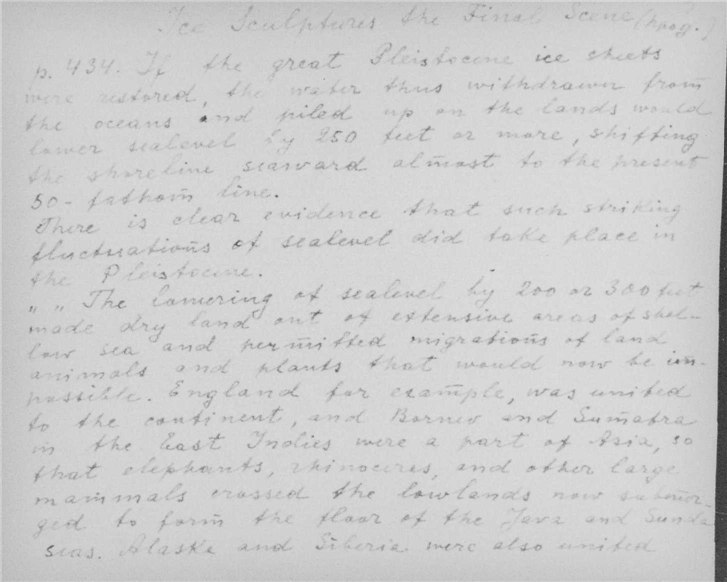 Ice Sculptures the Final Scene
p. 434. If the great Pleistocene ice sheets
were restored, the water thus withdrawn from
the oceans and piled up on the lands would
lower sealevel by 250 feet or more, shifting
the shoreline seaward almost to the present
50-fathom line.
There is clear evidence that such striking
fluctuations of sealevel did take place in
the Pleistocene.
„ „ The lowering of sealevel by 200 or 300 feet
made dry land out of extensive areas of shel-
low sea and permitted migrations of land
animals and plants that would now be im-
possible. England for example, was united
to the continent, and Borneo and Sumatra
in the East Indies were a part of Asia, so
that elephants, rhinoceres, and other large
mammals crossed the lowlands now submer-
ged to form the floor of the Java and Sunda
seas. Alaska and Siberia were also united